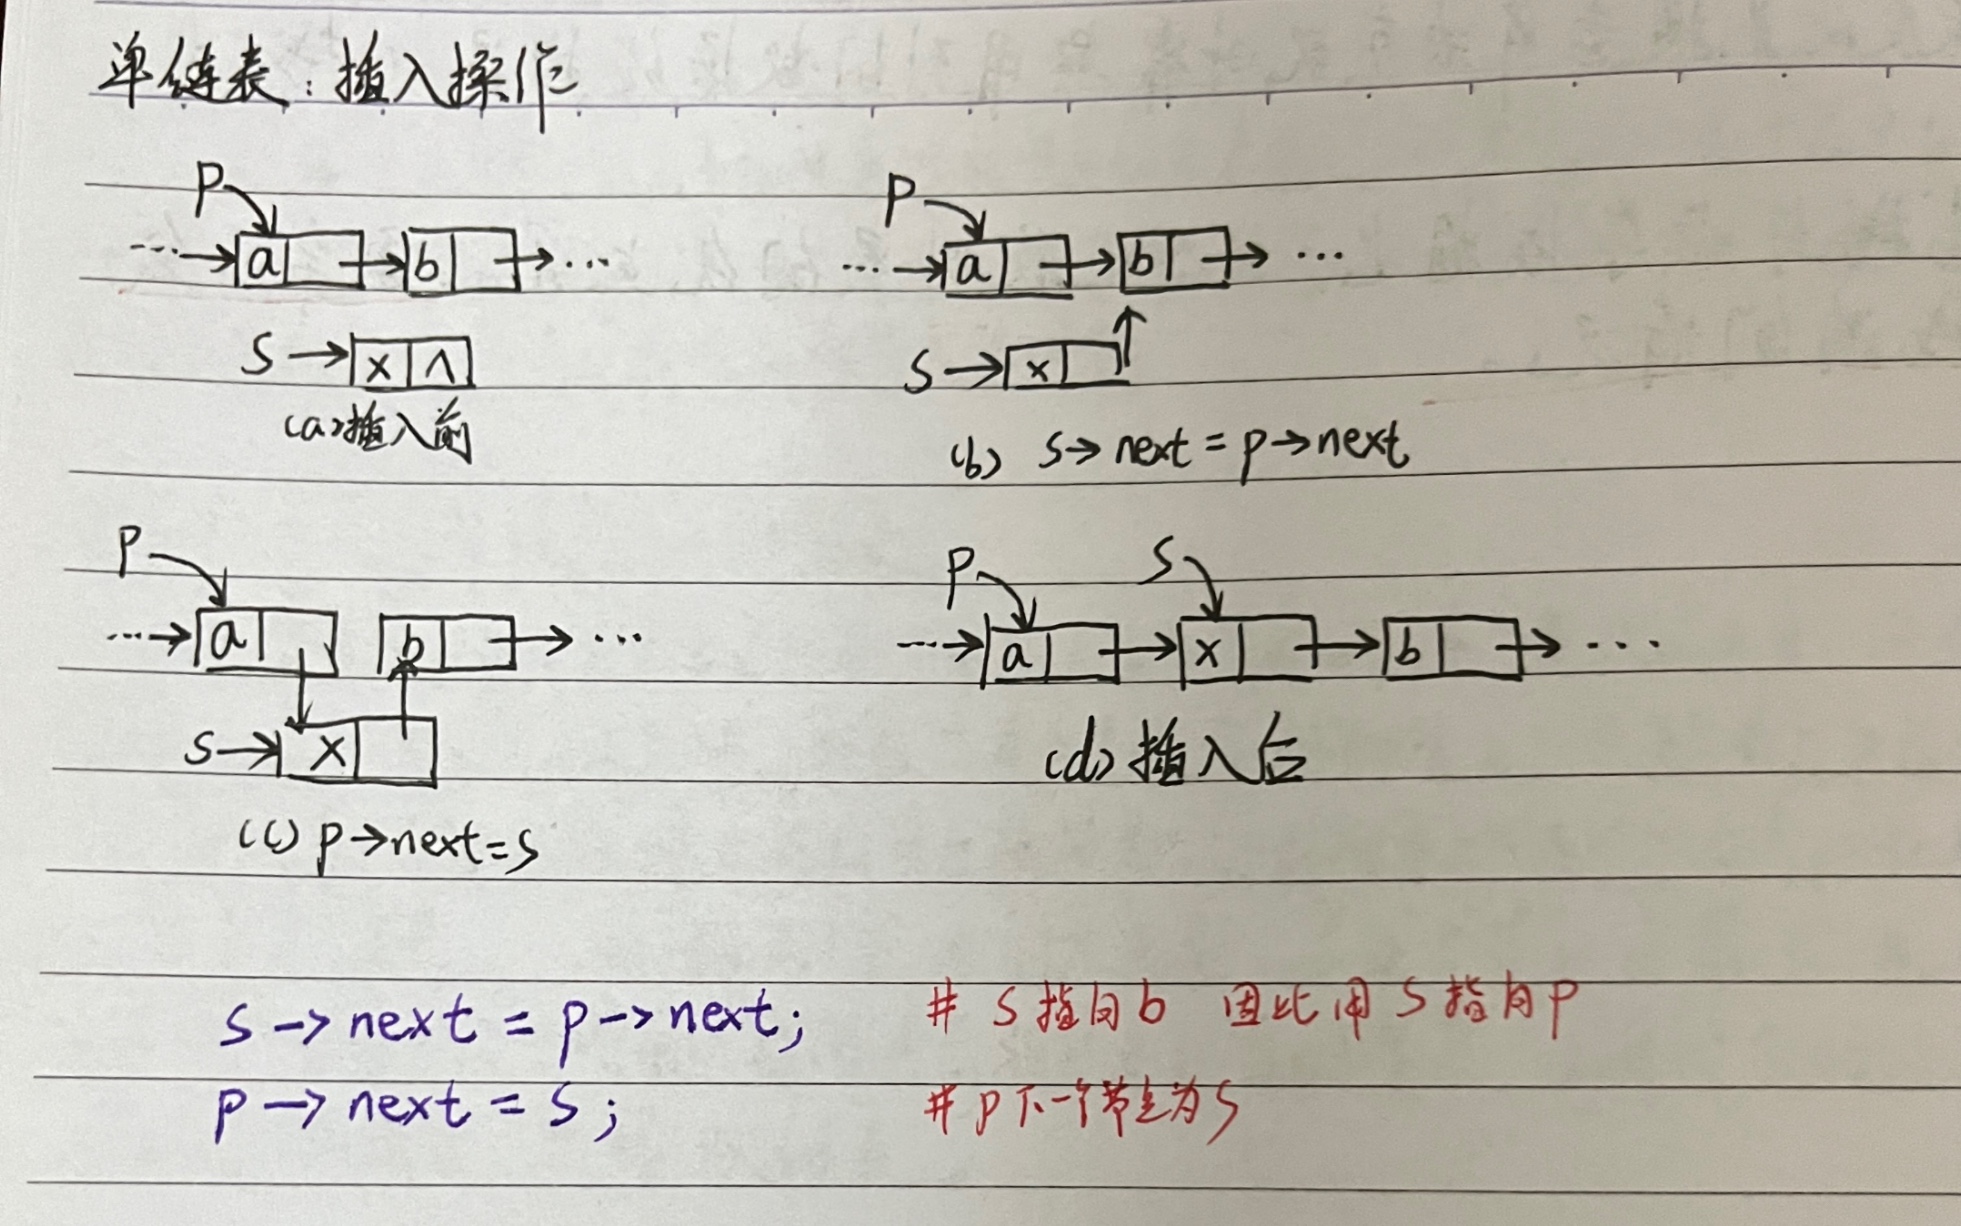 单链表：插入操作
p
… → a → b → …
S → x ∧
(a)插入前
p
… → a → b → …
S → x
(b) s→next = p→next
p
… → a b → …
S → x
(c) p→next=s
p S
… → a → x → b → …
(d)插入后
s -> next = p -> next; # S指向b 因此用S指向p
p -> next = s; # p下一个节点为S